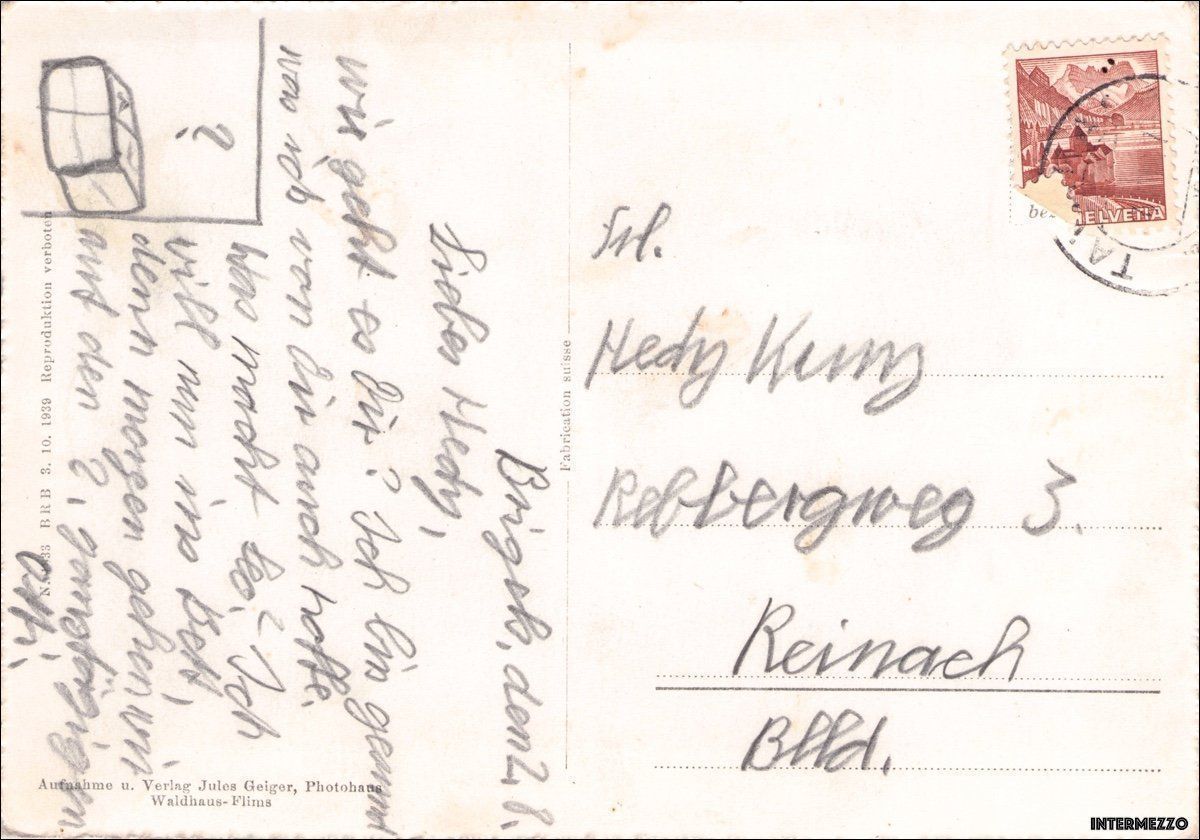 Brigels, den 2. 8.
Liebes Hedy,
wie geht es Dir? Ich bin gesund
was ich von Dir auch hoffe.
Was macht Leo? Ich
will nun ins Bett,
denn morgen gehen wir
auf den
?
Frl.
Hedy Kunz
Rebbergweg 3.
Reinach
Blld.
HELVETIA
TA
Fabrication suisse
BRB 3. 10. 1939 Reproduktion verboten
Aufnahme u. Verlag Jules Geiger, Photohaus
Waldhaus-Flims
INTERMEZZO